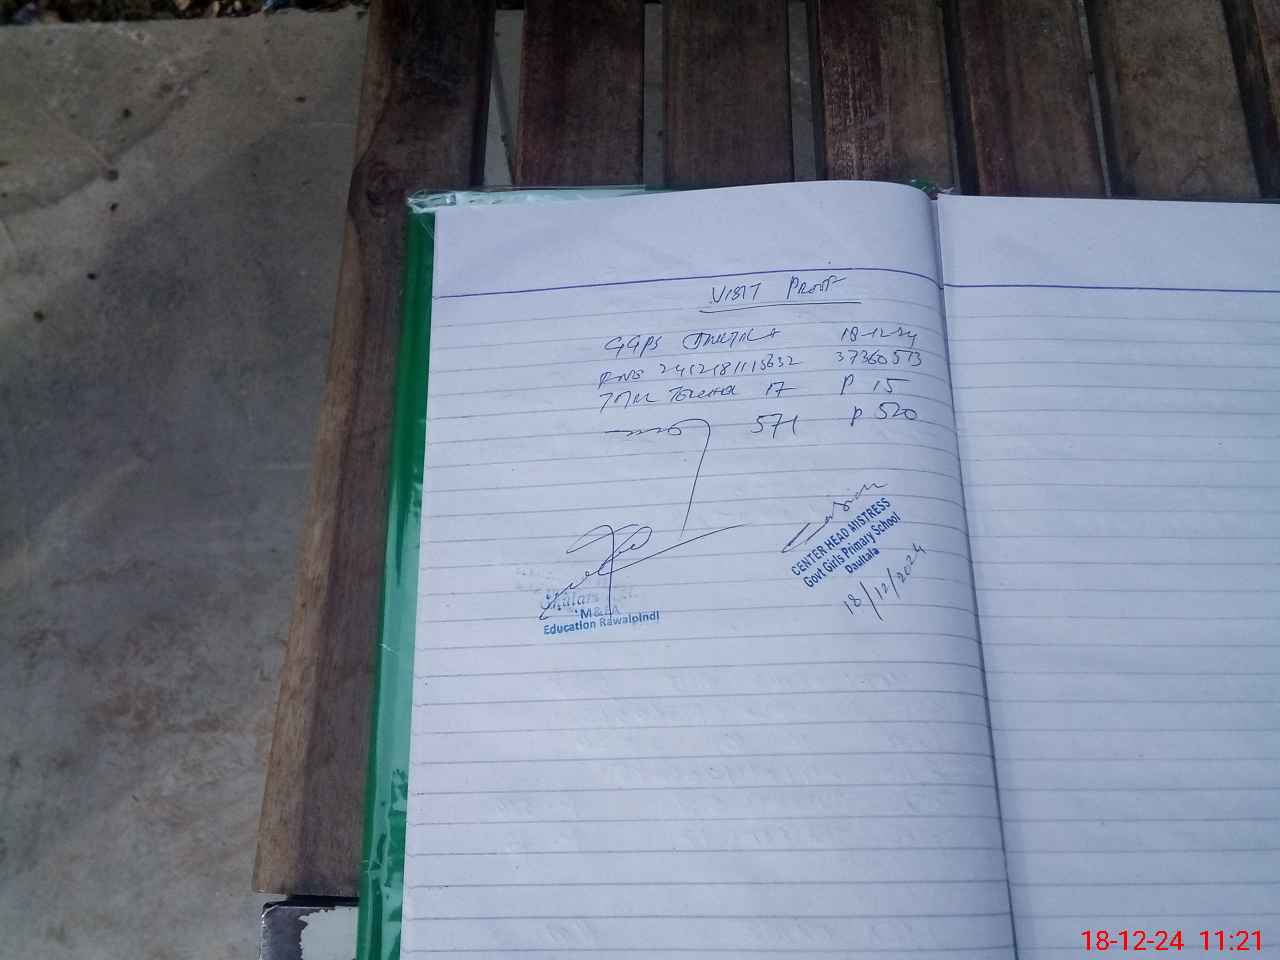 VISIT PROOF
GGPS DAULTALA 18-12-24
2412181115632 37360513
Total Teacher 17 P 15
571 P 520
CENTER HEAD MISTRESS
Govt Girls Primary School
Daultala
18/12/2024
M&EA
Education Rawalpindi
18-12-24 11:21